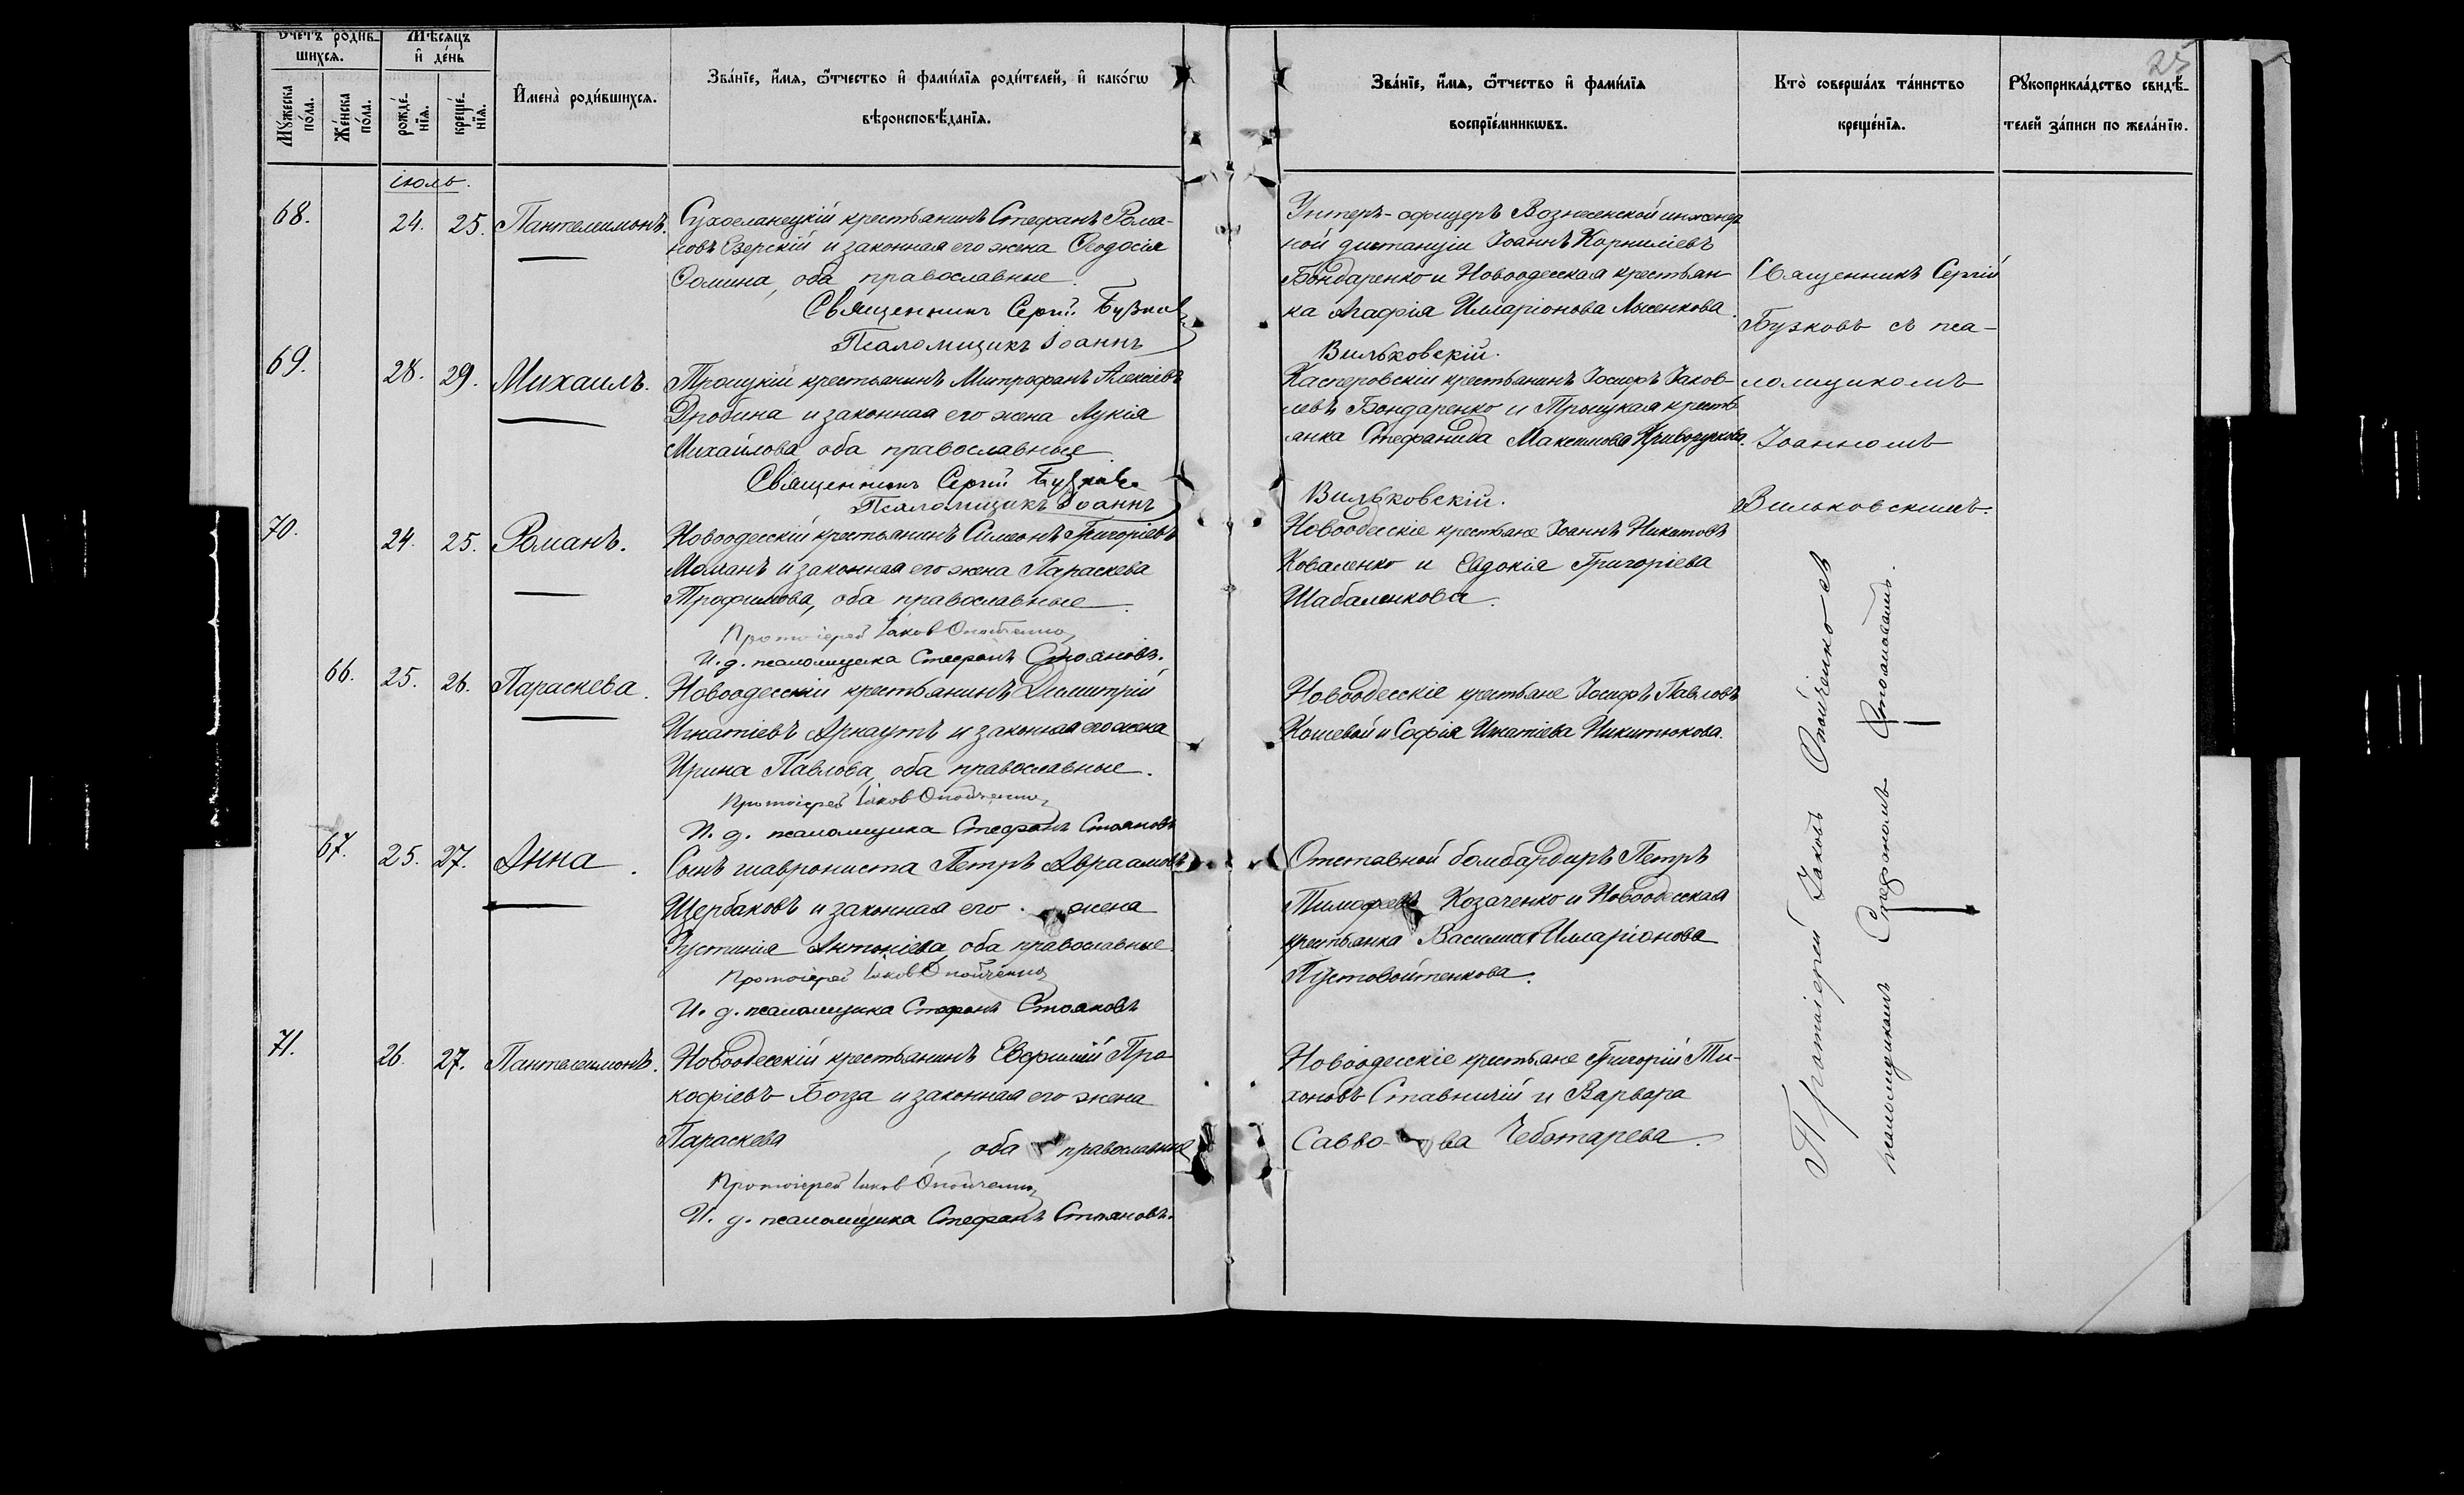 Счетъ родив-
шихся.
Мѣсяцъ
и день
Мужеска
пола.
Женска
пола.
рожде-
нія.
креще-
нія.
Имена родившихся.
Званіе, имя, отчество и фамилія родителей, и какого
вѣроисповѣданія.
іюль.
68.
24.
25.
Пантелимонъ.
Сухоеланецкій крестьянинъ Стефанъ Рома-
новъ Езерскій и законная его жена Ѳеодосія
Ѳомина, оба православные.
Священникъ Сергій Бузков
Псаломщикъ Іоаннъ
69.
28.
29.
Михаилъ.
Троицкій крестьянинъ Митрофанъ Алексіевъ
Дробина и законная его жена Лукія
Михайлова, оба православные
Священникъ Сергій Бузковъ
Псаломщикъ Іоаннъ
70.
24.
25.
Романъ.
Новоодесскій крестьянинъ Симеонъ Григоріевъ
Моланъ и законная его жена Параскева
Трофимова, оба православные.
Протоіерей Іаков Опойченко
И. д. псаломщика Стефанъ Стояновъ.
66.
25.
26.
Параскева.
Новоодесскій крестьянинъ Димитрій
Игнатіевъ Арнаутъ и законная его жена
Ирина Павлова, оба православные.
Протоіерей Іаков Опойченко
И. д. псаломщика Стефанъ Стояновъ
67.
25.
27.
Анна.
Сынъ Петръ Авраамовъ
Щербаковъ и законная его жена
Іустинія Антоніева, оба православные.
Протоіерей Іаков Опойченко
И. д. псаломщика Стефанъ Стояновъ
71.
26.
27.
Пантелеимонъ.
Новоодесскій крестьянинъ Евфимій Про-
кофіевъ Боза и законная его жена
Параскева , оба православные
Протоіерей Іаков Опойченко
И. д. псаломщика Стефанъ Стояновъ.
25
Званіе, имя, отчество и фамилія
воспріемниковъ.
Кто совершалъ таинство
крещенія.
Рукоприкладство свидѣ-
телей записи по желанію.
Унтеръ-офицеръ Вознесенской инженер
ной дистанціи Іоаннъ Корниліевъ
Бондаренко и Новоодесская крестьян-
ка Агафія Илларіонова Лысенкова.
Вильковскій.
Касперовскій крестьянинъ Іосифъ Іаков-
левъ Бондаренко и Троицкая кресть
янка Стефанида Максимова
Вильковскій.
Новоодесскіе крестьяне Іоаннъ Никитовъ
Коваленко и Евдокія Григоріева
Шабаленкова.
Новоодесскіе крестьяне Іосифъ Павловъ
Кошевой и Софія Игнатіева Никитюкова.
Отставной бомбардиръ Петръ
Тимофеевъ Козаченко и Новоодесская
крестьянка Василиса Илларіонова
Пустовойтенкова.
Новоодесскіе крестьяне Григорій Ти-
хоновъ Ставничій и Варвара
Савво- ва Чеботарева.
Священникъ Сергій
Бузковъ съ пса-
ломщикомъ
Іоанномъ
Вильковскимъ.
Протоіерей Іаковъ Опойченко съ
псаломщикомъ Стефаномъ Стояновымъ.